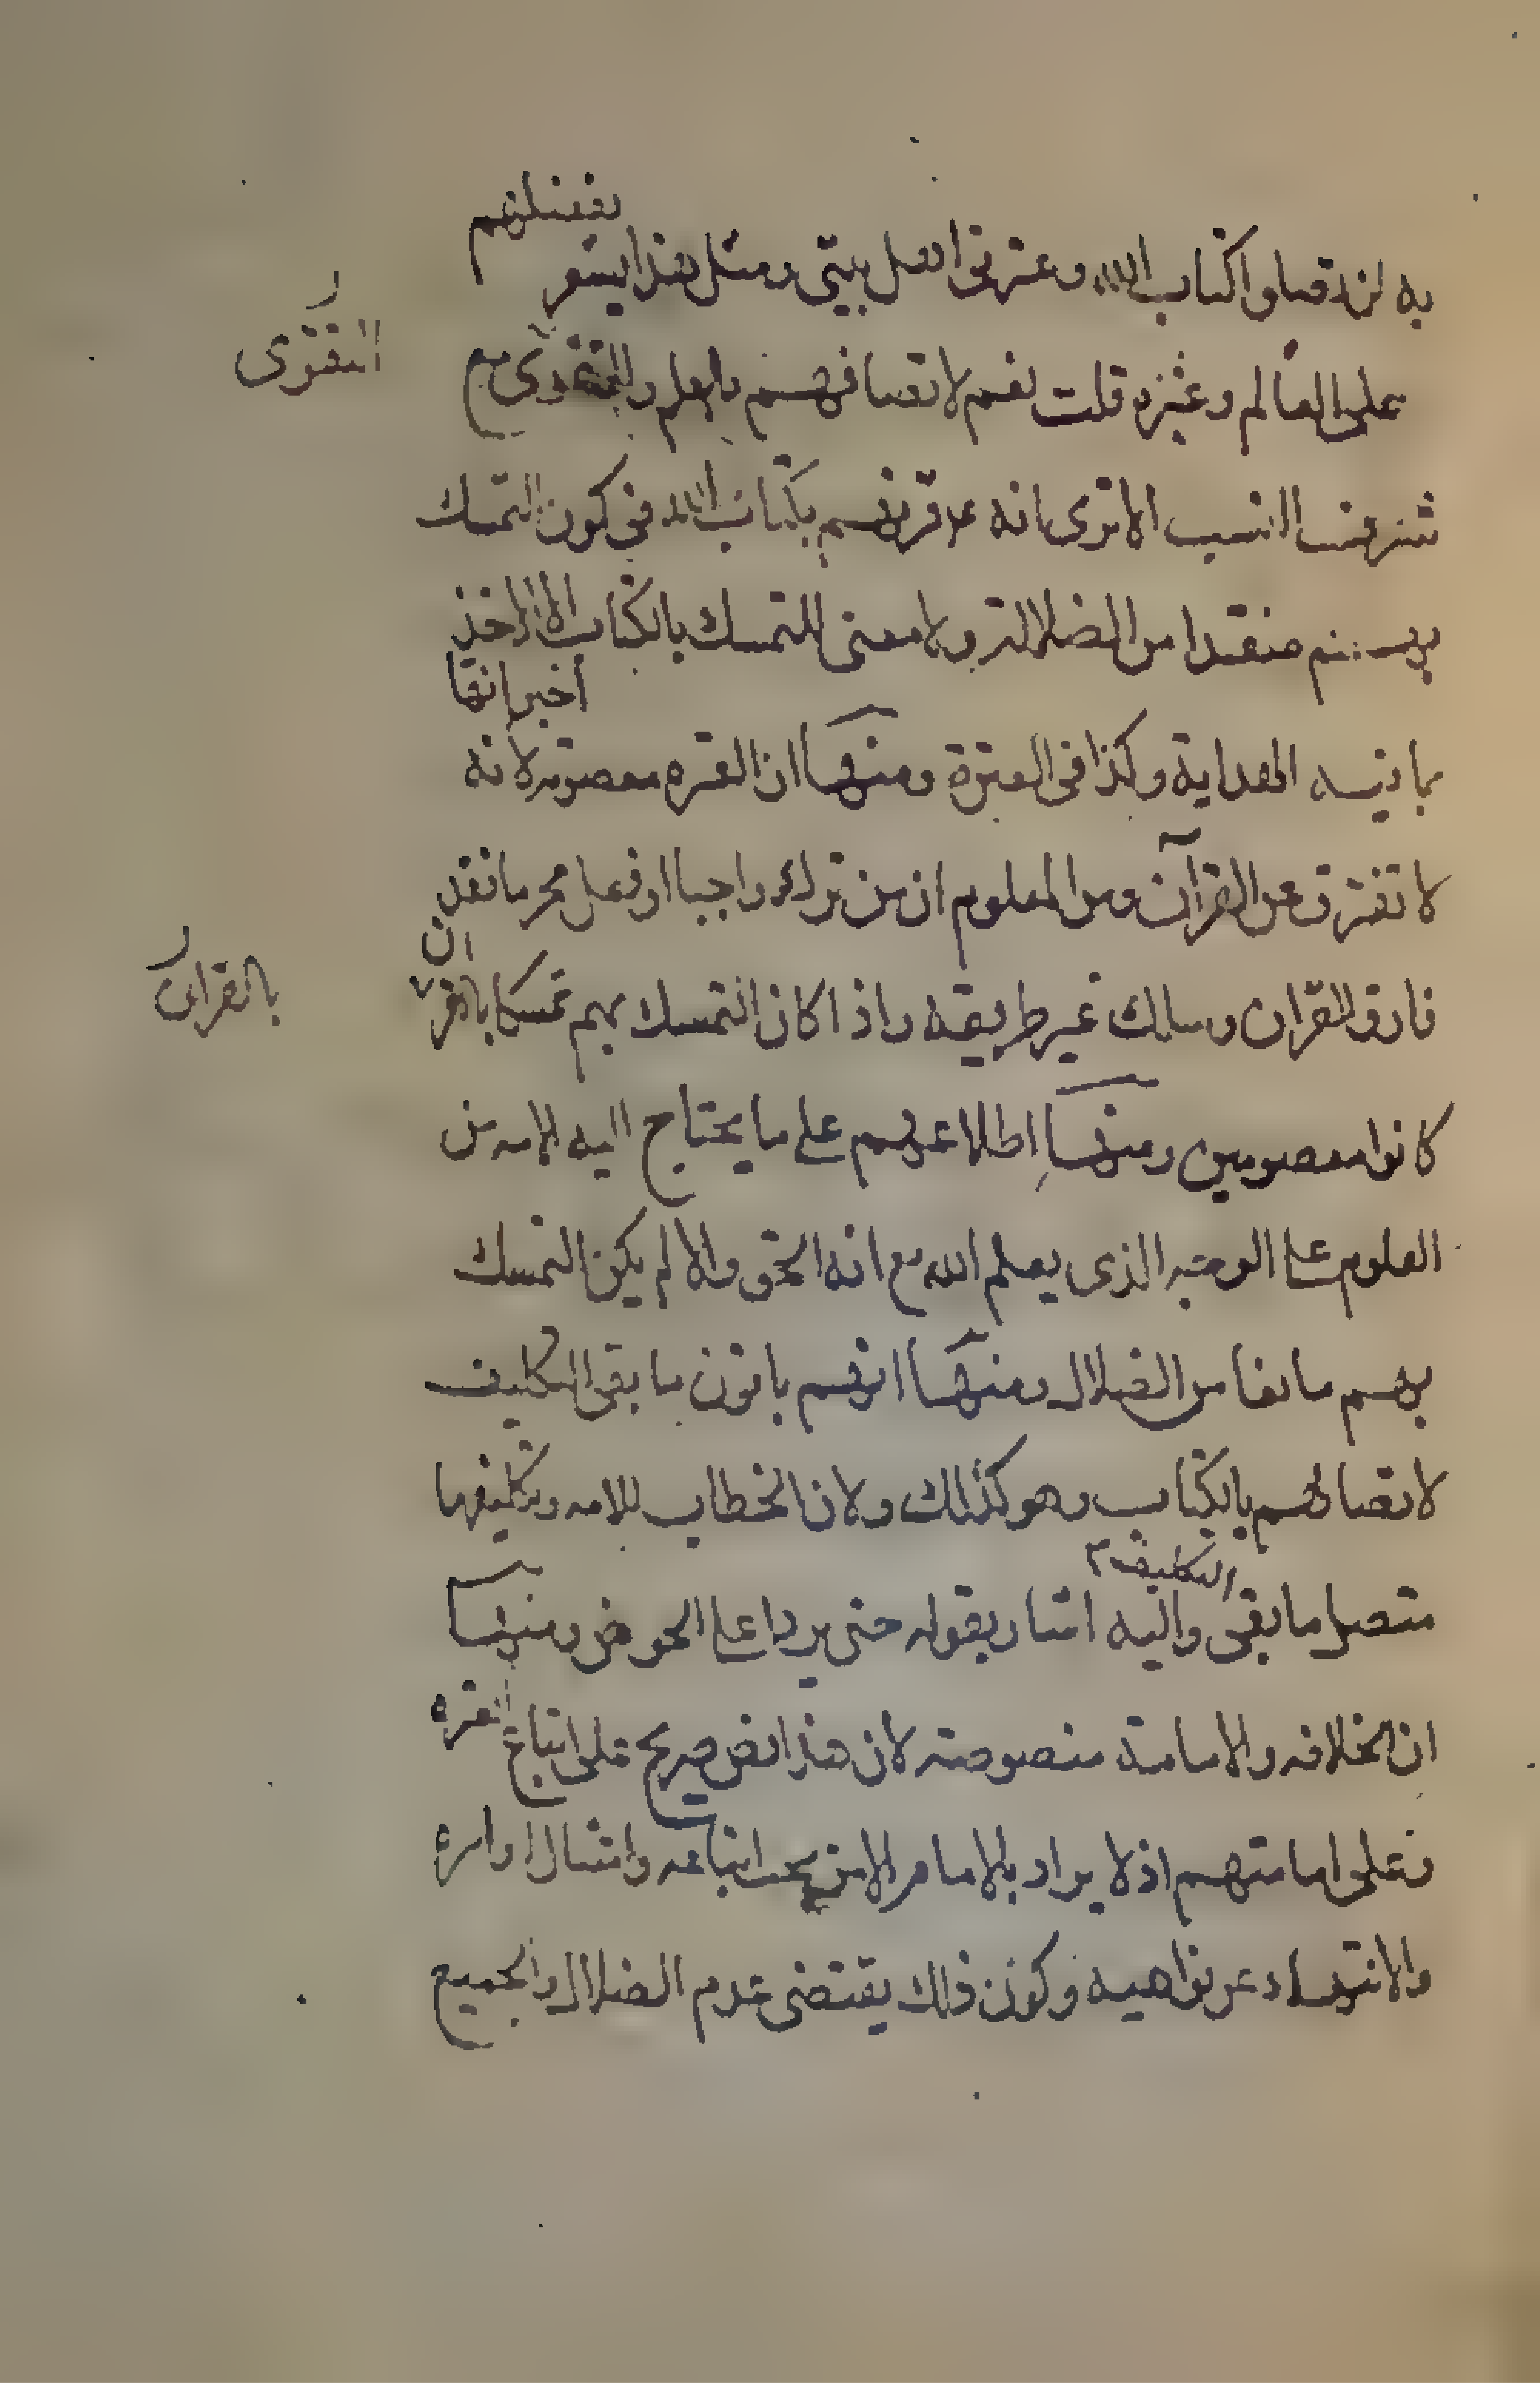 به لن تضلوا كتاب الله وعترتى اهل بيتى ومثل هذا يشعر بفضلهم
على العالم وغيره قلت نعم لاتصافهم بالعلم والتقوى مع
التقوى
شرف النسب الا ترى انه ع قرنهم بكتاب الله فى كون التمسك
بهم منقذا من الضلالة ولا معنى للتمسك بالكتاب الا الاخذ
بما فيه الهداية وكذا فى العترة ومنها ان العتره معصومه لانه
أخبر انها
لا تفترق عن القرآن ومن المعلوم ان من ترك واجبا او فعل محرما فقد
فارق القران وسلك غير طريقه واذا كان التمسك بهم تمسكا بالقران
بالقران
كانوا معصومين ومنها اطلاعهم على ما يحتاج اليه الامه من
العلوم على الوجه الذى يعلم الله مع انه الحق والا لم يكن التمسك
بهم مانعا من الضلال ومنها انهم باقون ما بقى التكليف
لاتصالهم بالكتاب وهو كذلك ولان الخطاب للامه وتكليفها
متصل ما بقى التكليف واليه اشار بقوله حتى يردا على الحوض ومنها
ان الخلافه والامامة منصوصه لان هذا نص صريح على اتباع العتره
وعلى امامتهم اذ لا يراد بالامام الا من يجب اتباعه وامتثال اوامره
والانتهاء عن نواهيه وكون ذلك يقتضى عدم الضلال والجميع